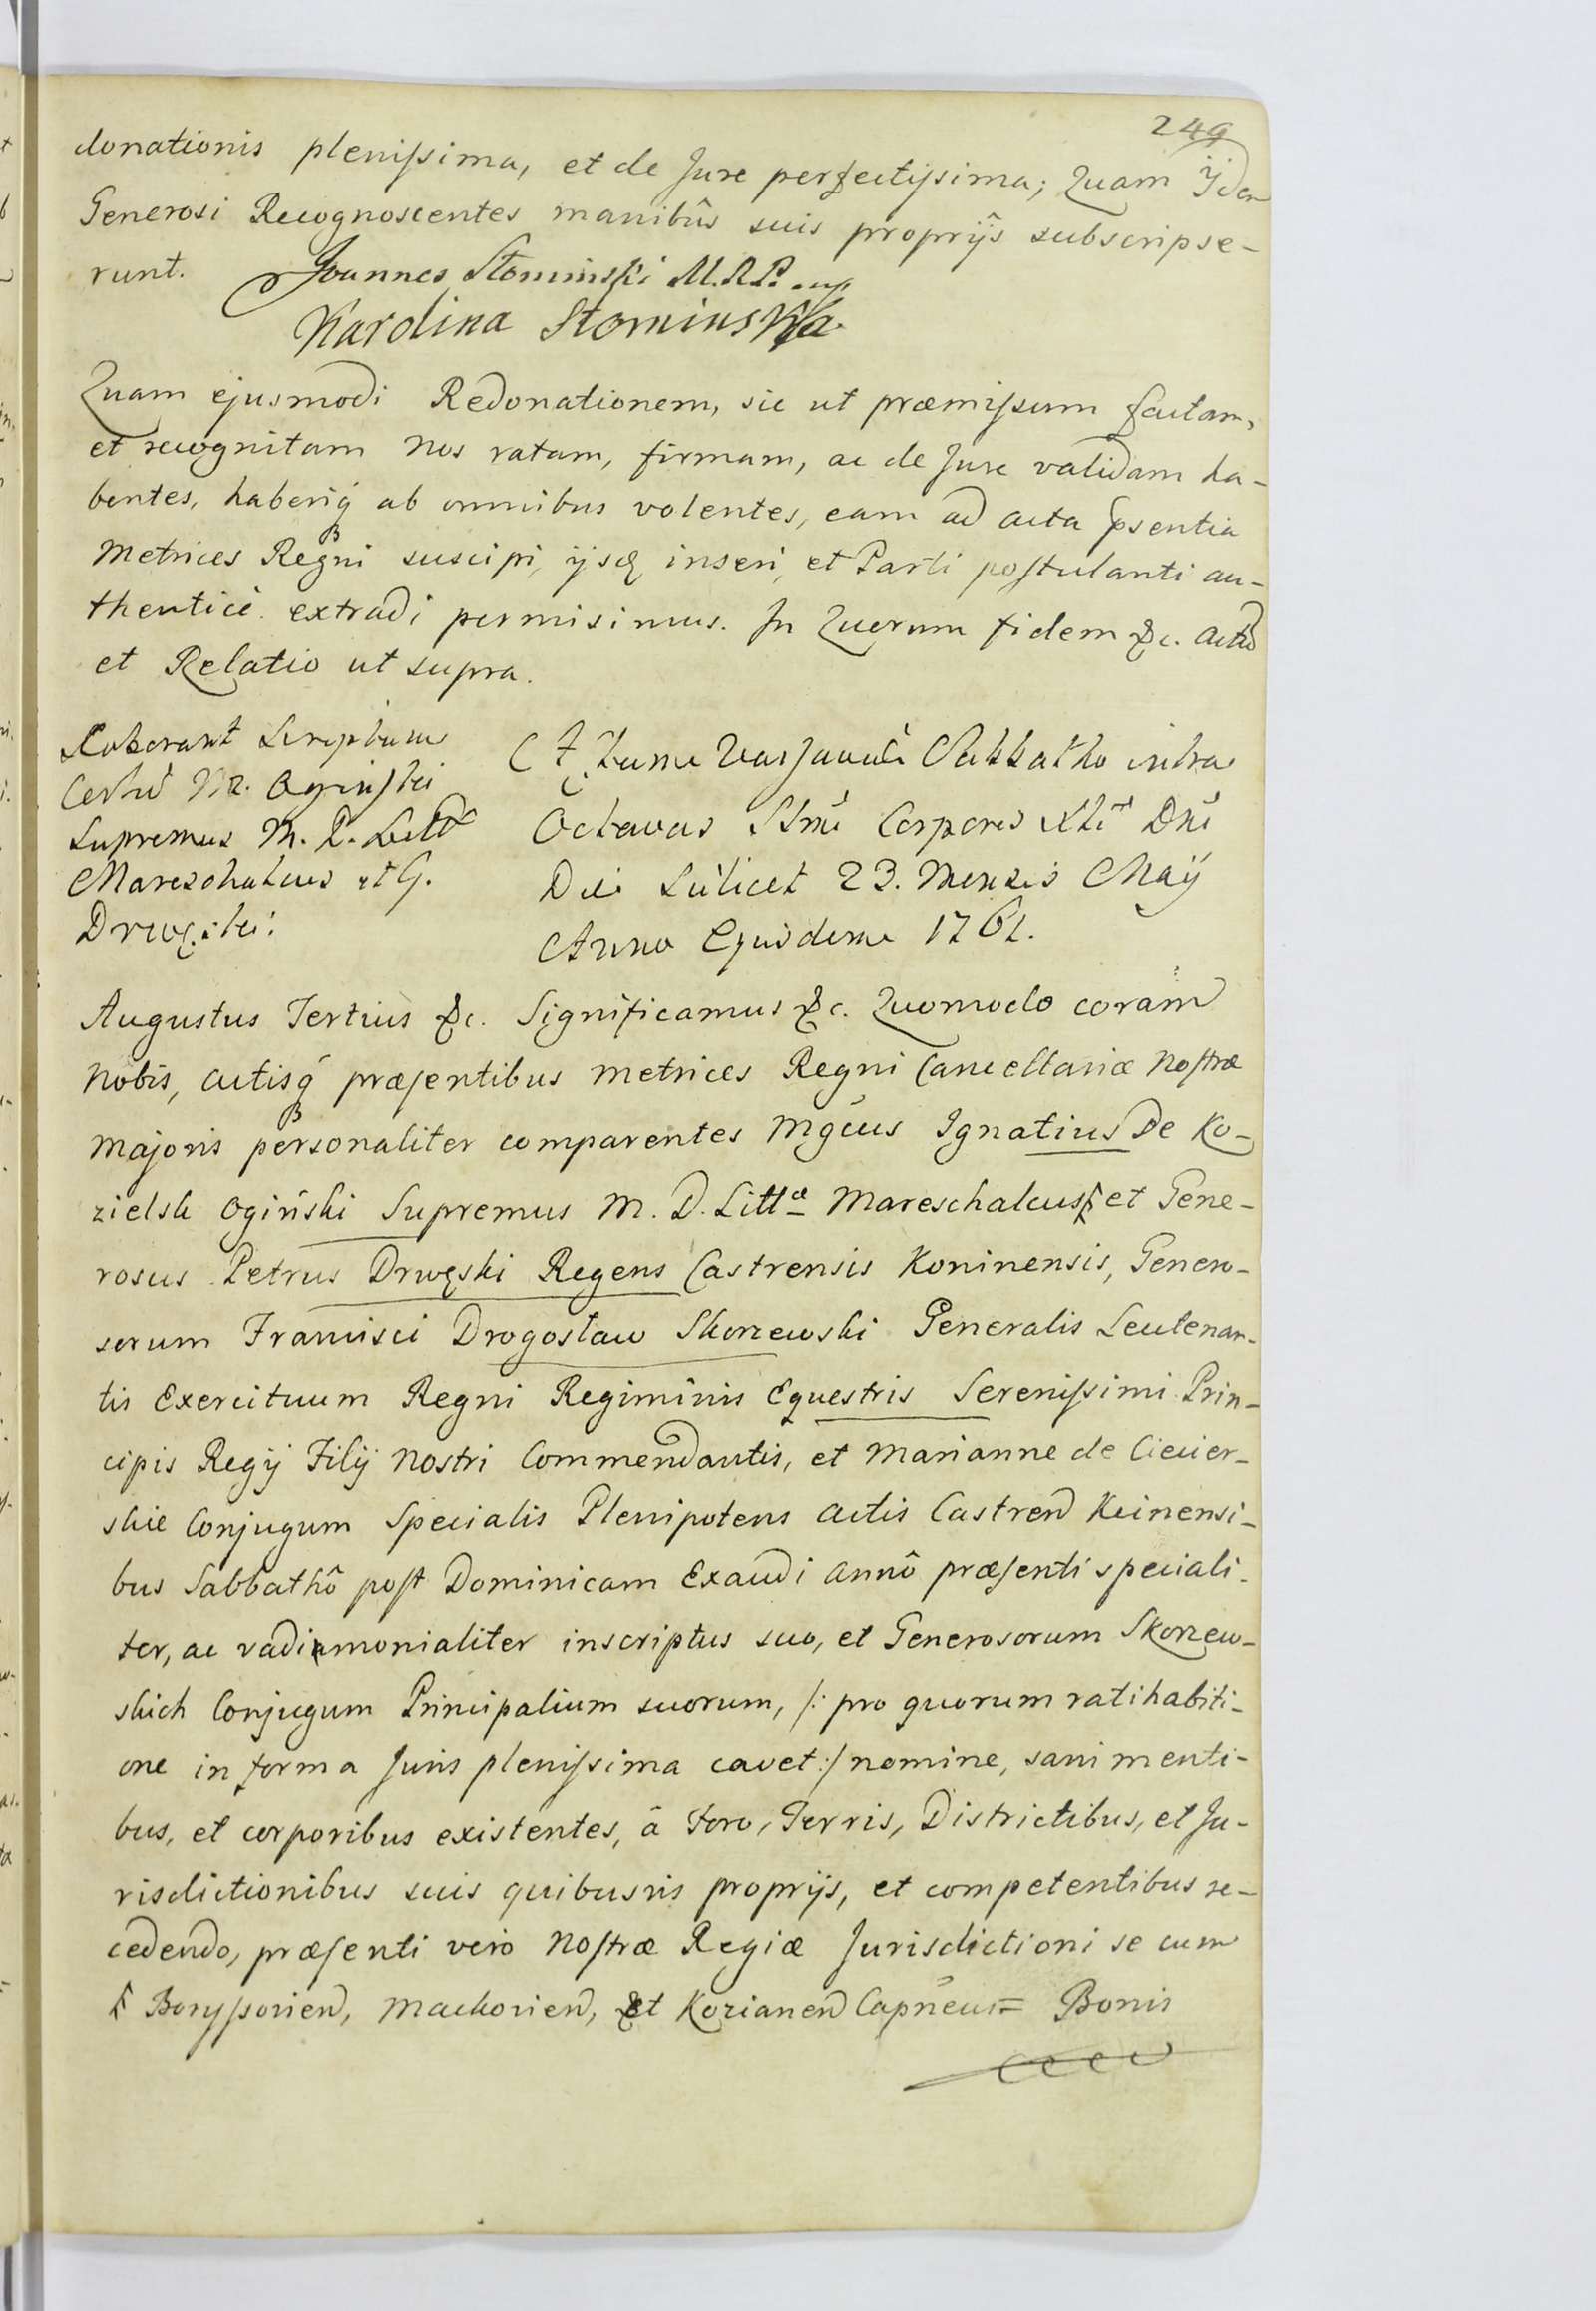 249
donationis plenissima, et de Jure perfectissima; Quam ijdem
Generosi Recognoscentes manibûs suis proprijs subscripse-
runt. Joannes Słominski M.R.P. mp
Karolina Słominska
Quam ejusmodi Redonationem, sic ut præmissum factam,
et recognitam Nos ratam, firmam, ac de Jure validam ha-
bentes, haberiq́ ab omnibus volentes, eam ad acta psentia
Metrices Regni suscipi, ijsq inseri, et Parti postulanti au-
thenticè extradi permisimus. In Quorum fidem &c. actũ
et Relatio ut supra.
Roborant Scriptum
Mr. Oginski
Supremus M. D. Littæ
Mareschalcus et G.
Drwęski
Actum Varsaviæ Sabbatho intra
Octavas SSmi Corporis Xti Dni
Die Scilicet 23. Mensis Maij
Anno Ejusdem 1761.
Augustus Tertius &c. Significamus &c. Quomodo coram
Nobis, actisq́ præsentibus Metrices Regni Cancellariæ Nostræ
Majoris personaliter comparentes Mgcus Ignatius De Ko-
zielsk Ogiński Supremus M. D. Littæ Mareschalcus et Gene-
rosus Petrus Drwęski Regens Castrensis Koninensis, Genero-
sorum Francisci Drogosław Skorzewski Generalis Leutenan-
tis Exercituum Regni Regiminis Equestris Serenissimi Prin-
cipis Regij Filij Nostri Commendantis, et Marianne de Ciecier-
skie Conjugum Specialis Plenipotens actis Castren Kcinensi-
bus Sabbathô post Dominicam Exaudi annô præsenti speciali-
ter, ac vadiamonialiter inscriptus suo, et Generosorum Skorzew-
skich Conjugum Principalium suorum, /: pro quorum ratihabiti-
one in forma Juris plenissima cavet :/ nomine, sani menti-
bus, et corporibus existentes, â Foro, Terris, Districtibus, et Ju-
risdictionibus suis quibusvis proprijs, et competentibus re-
cedendo, præsenti vero Nostræ Regiæ Jurisdictioni se cum
Boryssovien, Mackovien, et Kozianen Capneus= Bonis